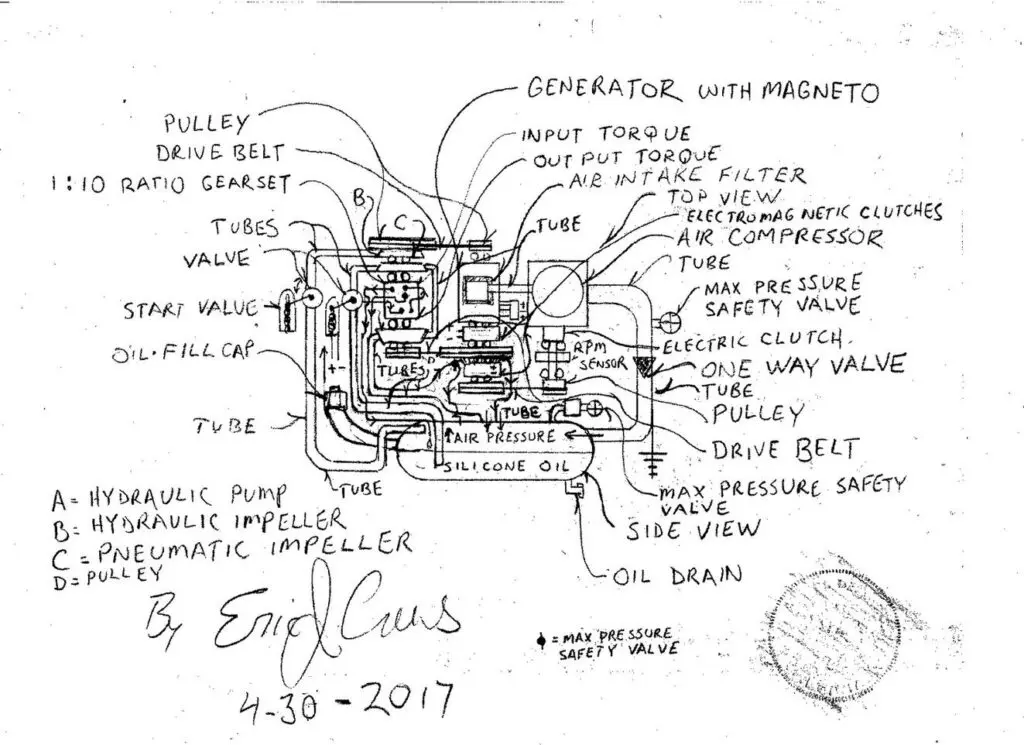 GENERATOR WITH MAGNETO
PULLEY
DRIVE BELT
1:10 RATIO GEARSET
INPUT TORQUE
OUTPUT TORQUE
AIR INTAKE FILTER
TOP VIEW
ELECTROMAGNETIC CLUTCHES
AIR COMPRESSOR
TUBE
B
C
TUBE
TUBES
VALVE
START VALVE
OIL FILL CAP
MAX PRESSURE
SAFETY VALVE
ELECTRIC CLUTCH.
RPM
SENSOR
ONE WAY VALVE
TUBE
PULLEY
TUBES
D
+-
TUBE
TUBE
DRIVE BELT
AIR PRESSURE
SILICONE OIL
TUBE
MAX PRESSURE SAFETY
VALVE
SIDE VIEW
OIL DRAIN
A= HYDRAULIC PUMP
B= HYDRAULIC IMPELLER
C= PNEUMATIC IMPELLER
D= PULLEY
By
4-30-2017
= MAX PRESSURE
SAFETY VALVE